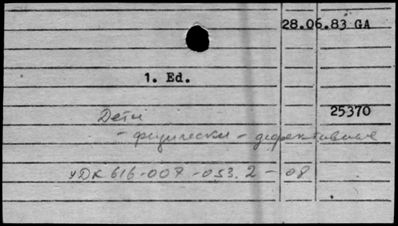 28.06.83 GA
1. Ed.
25370
Дети
- физически - дефективные
УДК 616-007-053.2-08